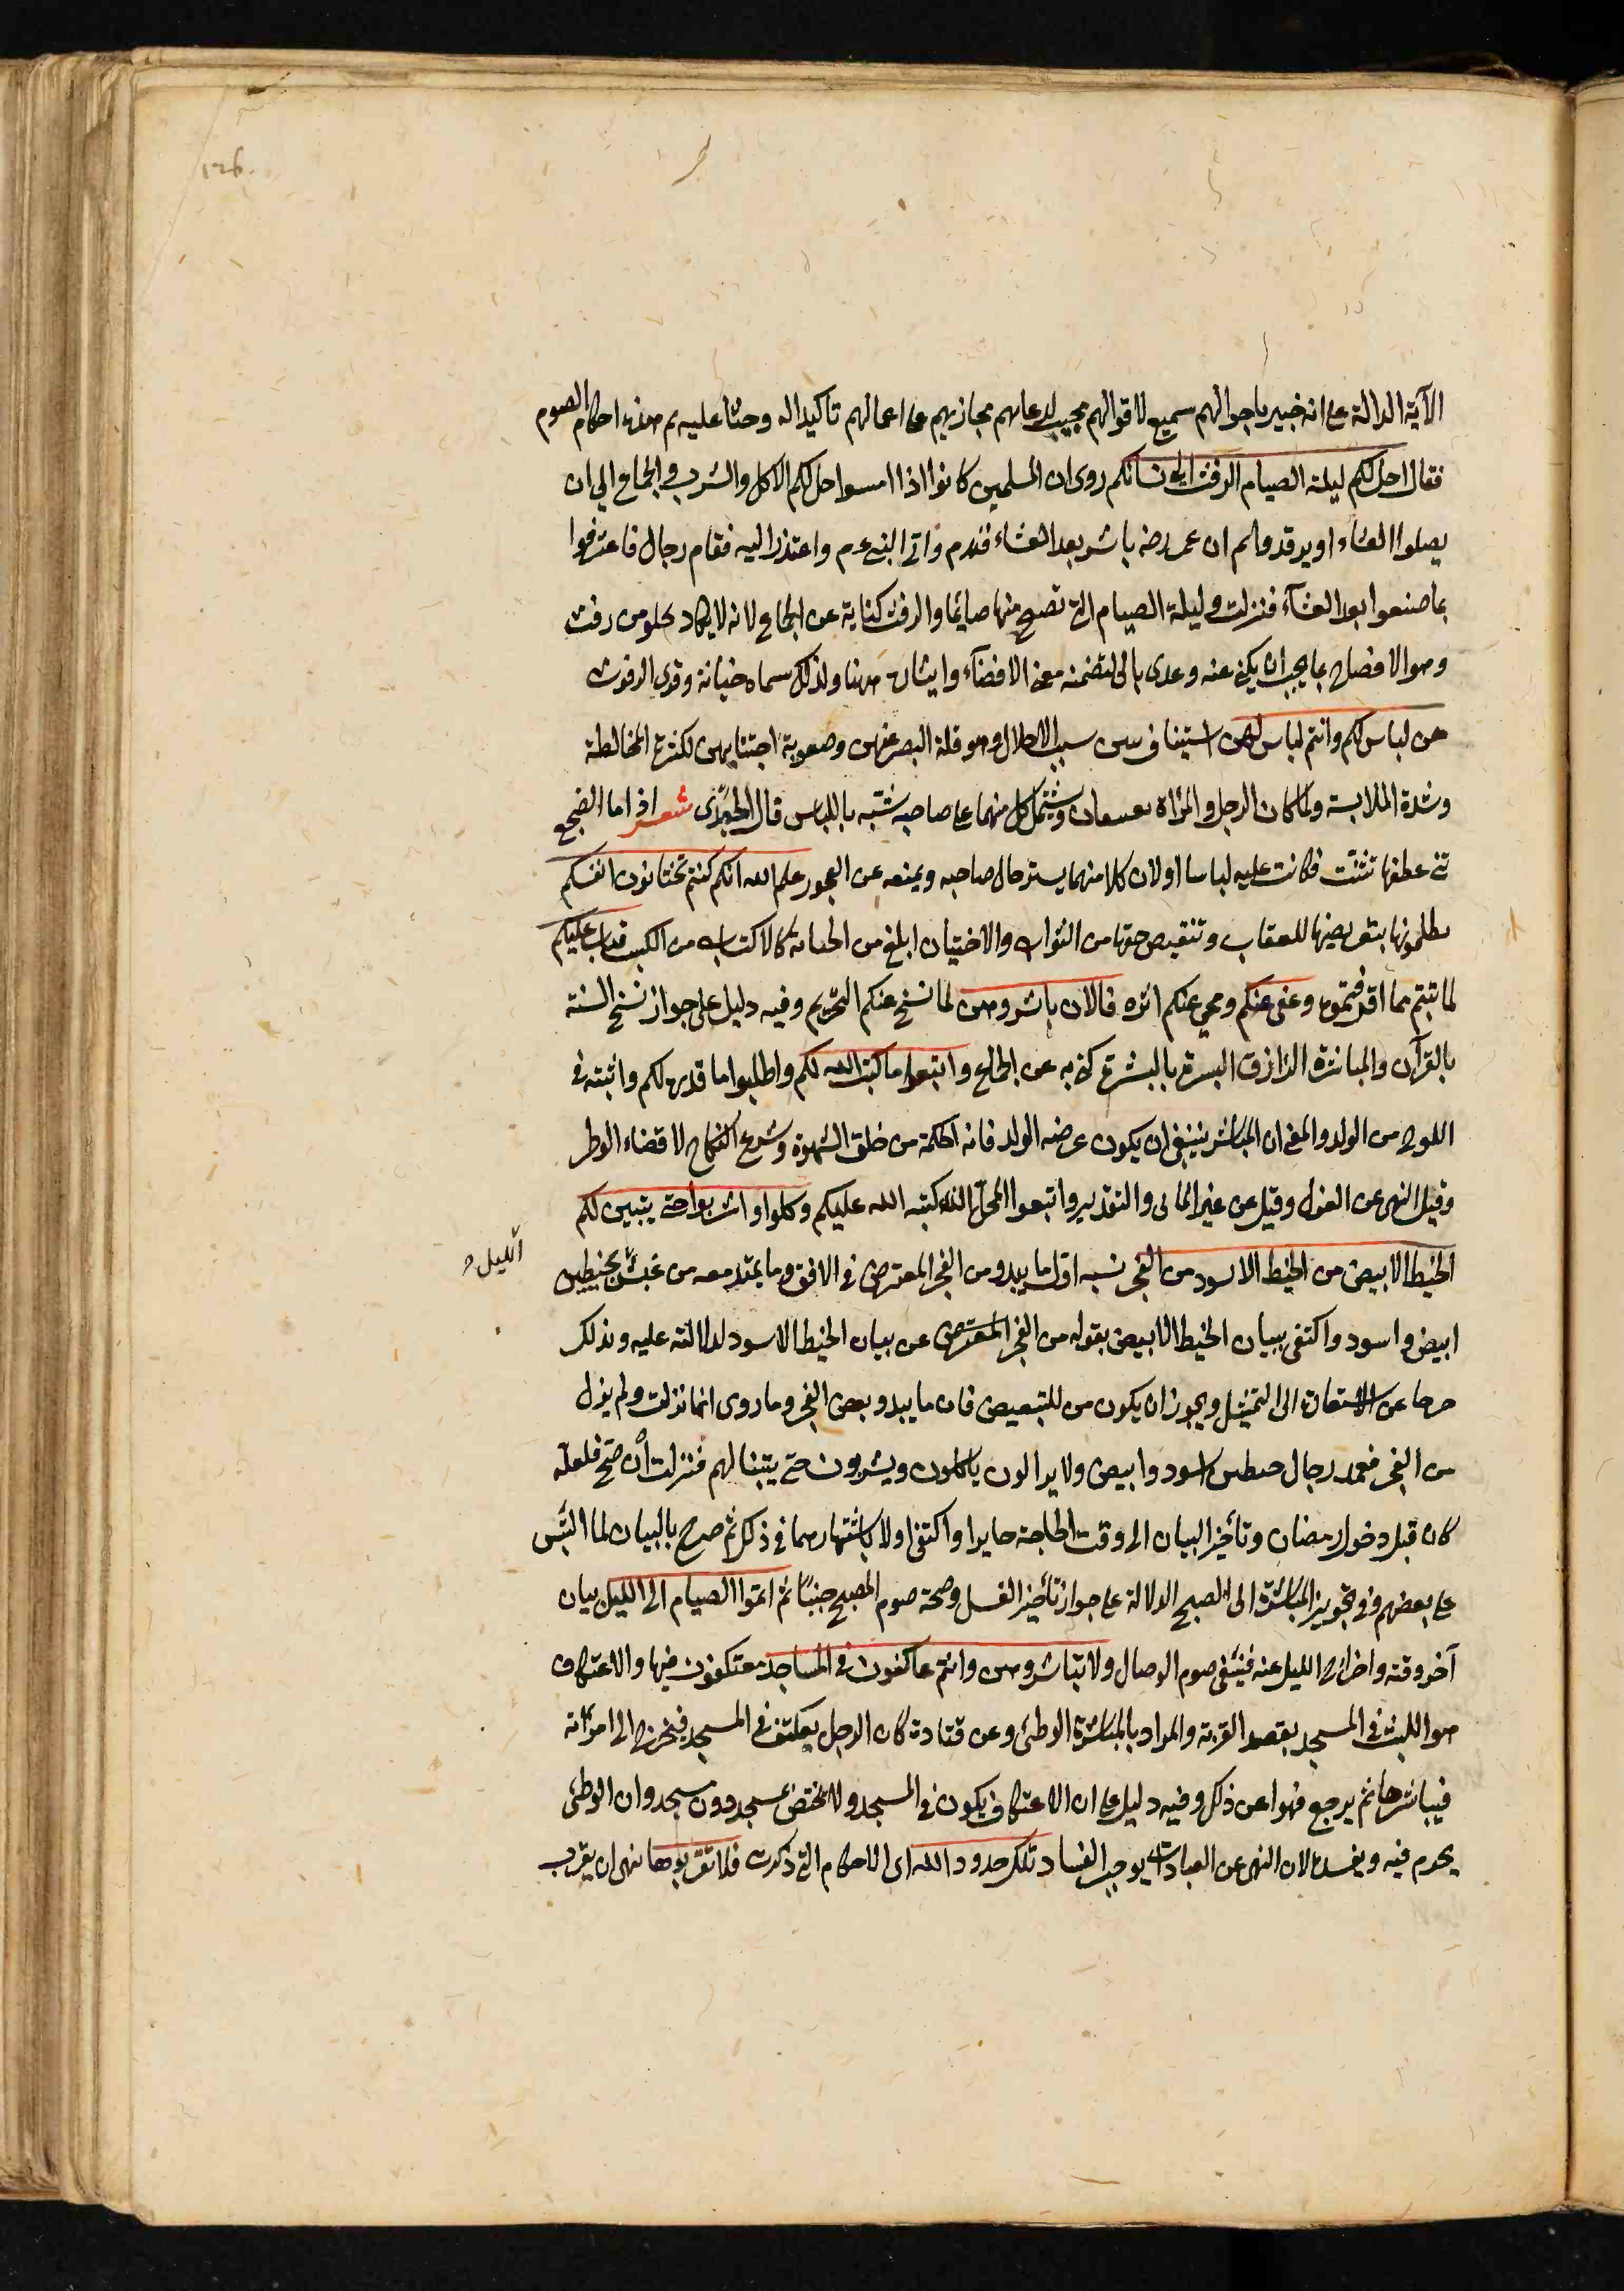 الآية الدالة على انه خبير باحوالهم سميع لاقوالهم مجيب لدعائهم مجازيهم على اعمالهم تاكيدا له وحثا عليه ثم بين احكام الصوم
فقال احل لكم ليلة الصيام الرفث الى نسائكم روى ان المسلمين كانوا اذا امسوا حل لهم الاكل والشرب والجماع الى ان
يصلوا العشاء او يرقدوا ثم ان عمر رضه باشر بعد العشاء فندم واتى النبى عم واعتذر اليه فقام رجال فاعترفوا
بما صنعوا بعد العشآء فنزلت وليلة الصيام التى تصبح منها صايما والرفث كناية عن الجماع لانه لا يكاد يخلو من رفث
وهو الافصاح بما يجب ان يكنى عنه وعدى بالى لتضمنه معنى الافضآء وايثاره ههنا ولذلك سماه خيانة وقرى الرفوث
هن لباس لكم وانتم لباس لهن استيناف يبين سبب الاحلال وهو قلة الصبر عنهن وصعوبة اجتنابهن لكثرة المخالطة
وشدة الملابسة ولما كان الرجل والمرأة يعتنقان ويشتمل كل منهما على صاحبه شبّه باللباس قال الجعدى شعر اذا ما الضجيع
ثنى عطفها تثنّت فكانت عليه لباسا او لان كلا منهما يستر حال صاحبه ويمنعه عن الفجور علم الله انكم كنتم تختانون انفسكم
تظلمونها بتعريضها للعقاب وتنقيص حظها من الثواب والاختيان ابلغ من الخيانة كالاكتساب من الكسب فتاب عليكم
لما تبتم مما اقترفتموه وعفى عنكم ومحى عنكم اثره فالان باشروهن لما نسخ عنكم التحريم وفيه دليل على جواز نسخ السنة
بالقرآن والمباشرة الزاق البشرة بالبشرة كنى به عن الجماع وابتغوا ما كتب الله لكم واطلبوا ما قدره لكم واثبته فى
اللوح من الولد والمعنى ان المباشر ينبغى ان يكون غرضه الولد فانه الحكمة من خلق الشهوة وشرع النكاح لا قضاء الوطر
وقيل النهى عن العزل وقيل عن غير الماتى والتقدير وابتغوا المحل الذى كتبه الله عليكم وكلوا واشربوا حتى يتبين لكم
الخيط الابيض من الخيط الاسود من الفجر شبه اوّل ما يبدو من الفجر المعترض فى الافق وما يمتد معه من غبش بخيطين
الليل
ابيض واسود واكتفى ببيان الخيط الابيض بقوله من الفجر المعترض عن بيان الخيط الاسود لدلالته عليه وبذلك
خرجا عن الاستعارة الى التمثيل ويجوز ان يكون من للتبعيض فان ما يبدو بعض الفجر وما روى انها نزلت ولم ينزل
من الفجر فعمد رجال خيطين اسود وابيض ولا يزالون ياكلون ويشربون حتى يتبينا لهم فنزلت ان صح فلعله
كان قبل دخول رمضان وتأخير البيان الى وقت الحاجة جايز او اكتفى اولا باشتهارهما فى ذلك ثم صرح بالبيان لما التبس
على بعضهم وفى تجويز المباشرة الى الصبح الدلالة على جواز تأخير الغسل وصحة صوم المصبح جنبًا ثم اتموا الصيام الى الليل بيان
آخر وقته واخراج الليل عنه فينتفى صوم الوصال ولا تباشروهن وانتم عاكفون فى المساجد معتكفون فيها والاعتكاف
هو اللبث فى المسجد بقصد القربة والمراد بالمباشرة الوطئ وعن قتادة كان الرجل يعتكف فى المسجد فيخرج الى امرأته
فيباشرها ثم يرجع فنهوا عن ذلك وفيه دليل على ان الاعتكاف يكون فى المسجد ولا يختص بمسجد دون مسجد وان الوطئ
يحرم فيه ويفسده لان النهى عن العبادات يوجب الفساد تلك حدود الله اى الاحكام التى ذكرت فلا تقربوها نهى ان يقرب